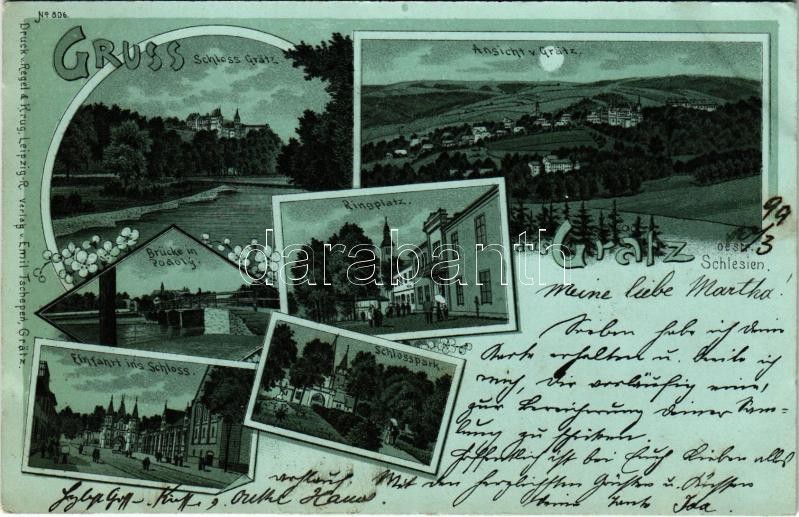 No 806.
GRUSS
Schloss Grätz.
Ansicht v. Grätz.
Ringplatz.
Brücke in
Podoly.
Einfahrt ins Schloss.
Schlosspark.
Grätz
oestr.
Schlesien.
Druck v. Regel & Krug, Leipzig-R. Verlag v. Emil Tschepen, Grätz.
darabanth
99
/3
Meine liebe Martha!
Soeben habe ich deine
Karte erhalten u. beeile ich
mich, dir vorläufig eine,
zur Bereicherung deiner Samm-
lung zu schicken.
Hoffentlich ist bei Euch Lieben alles
wohlauf. Mit den herzlichsten Grüßen u. Küssen
deine Tante Ida
Onkel Hans